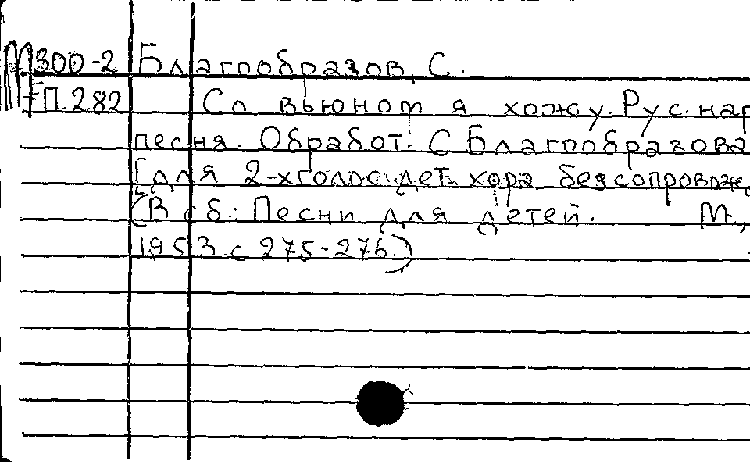 М300-2 Благообразов, С.
П.282 Со вьюном я хожу. Рус. нар
песня. Обработ. С Благообразова
[для 2-хголос. дет. хора без сопровожд
(В сб: Песни для детей. М,
1953 с 275-276)